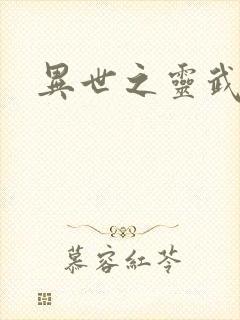 異世之靈武
慕容紅苓